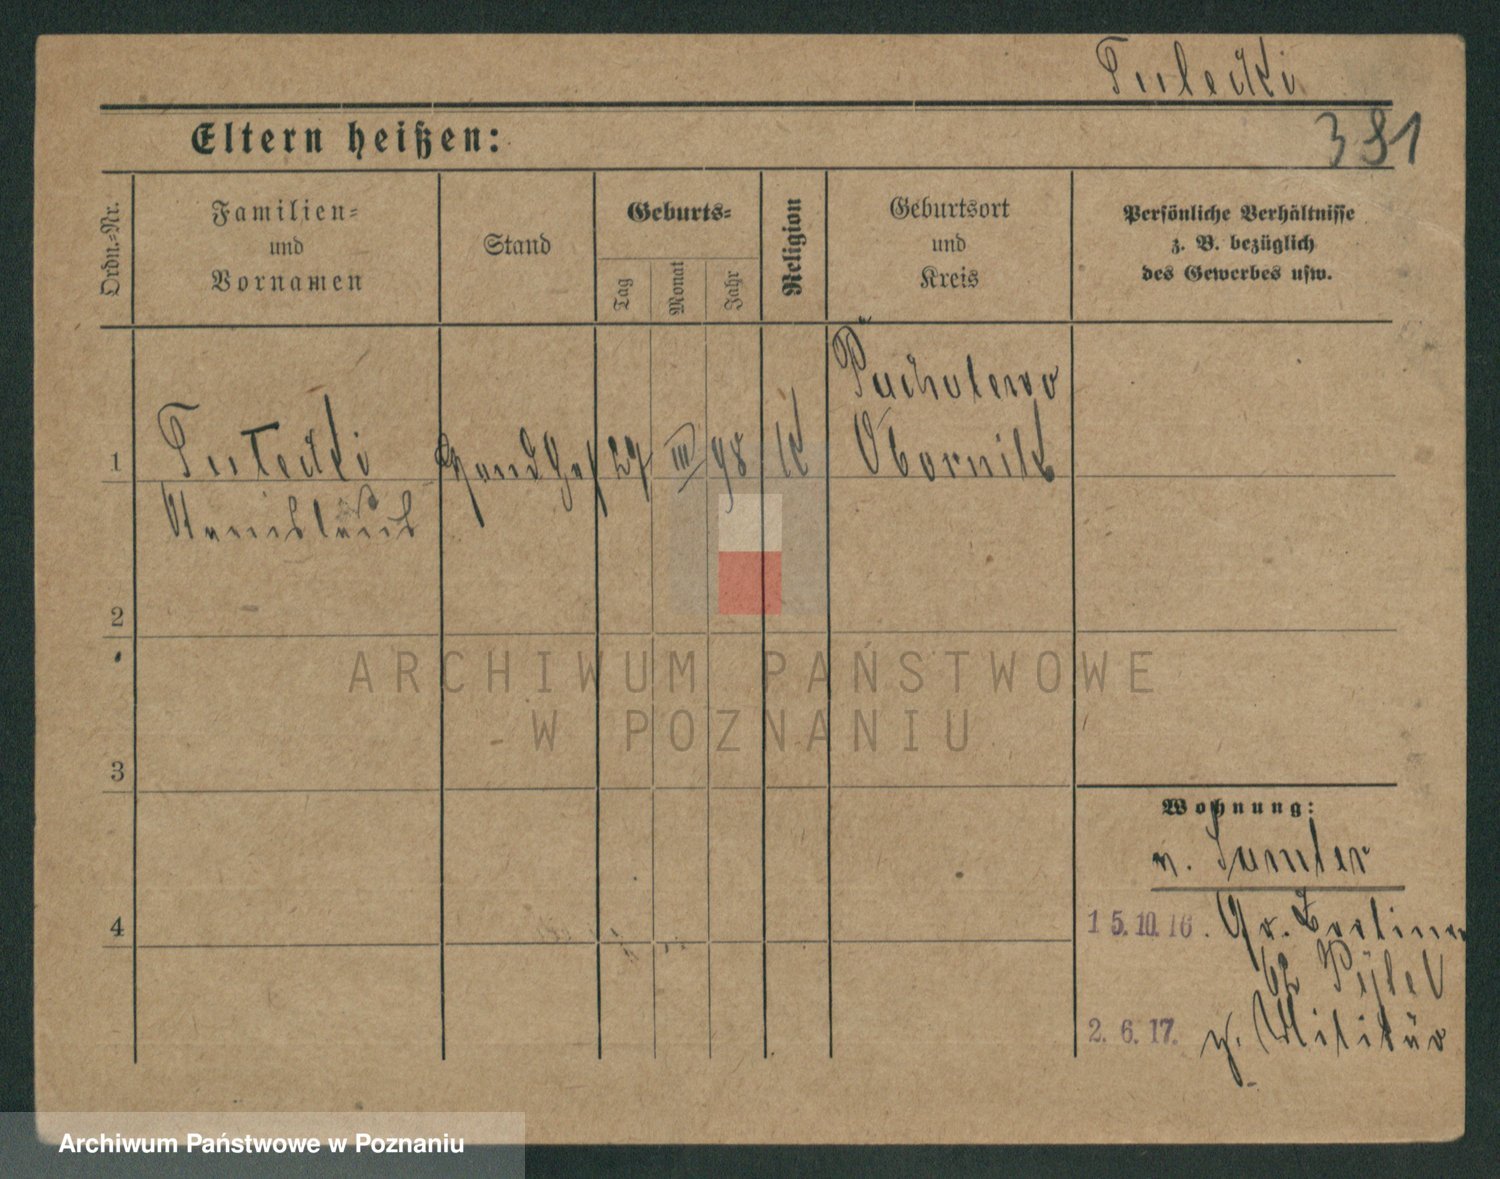 Tulecki
381
Eltern heißen:
Ordn.-Nr.
Familien-
und
Vornamen
Stand
Geburts-
Tag
Monat
Jahr
Religion
Geburtsort
und
Kreis
Persönliche Verhältnisse
z. B. bezüglich
des Gewerbes usw.
1
Tulecki
Stanislaus
27
III
98
K
Pacholewo
Obornik
2
3
4
Wohnung:
v. Samter
15.10.16. Gr. Berliner
b/
2. 6. 17. z. Militär
ARCHIWUM PAŃSTWOWE
W POZNANIU
Archiwum Państwowe w Poznaniu